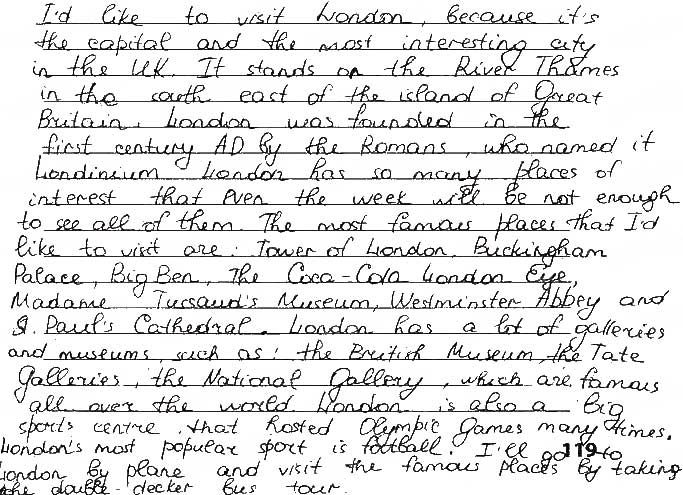 I'd like to visit London, because it's
the capital and the most interesting city
in the UK. It stands on the River Thames
in the south east of the island of Great
Britain. London was founded in the
first century AD by the Romans, who named it
Londinium. London has so many places of
interest that even the week will be not enough
to see all of them. The most famous places that I'd
like to visit are: Tower of London, Buckingham
Palace, Big Ben, The Coca-Cola London Eye,
Madame Tussaud's Museum, Westminster Abbey and
St. Paul's Cathedral. London has a lot of galleries
and museums, such as: the British Museum, the Tate
Galleries, the National Gallery, which are famous
all over the world. London is also a big
sports centre, that hosted Olympic Games many times.
London's most popular sport is football. I'll go 119 to
London by plane and visit the famous places by taking
the double-decker bus tour.